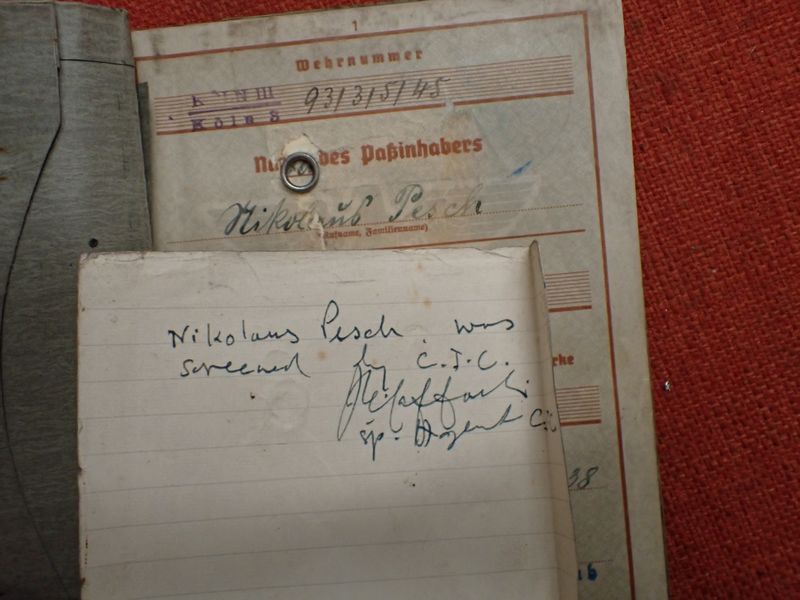 1
Wehrnummer
KÖLN III
Köln S
93/3/5/45
des Paßinhabers
Nikolaus Pesch
(Rufname, Familienname)
rke
38
Nikolaus Pesch was
screened by C.I.C.
sp. Agent